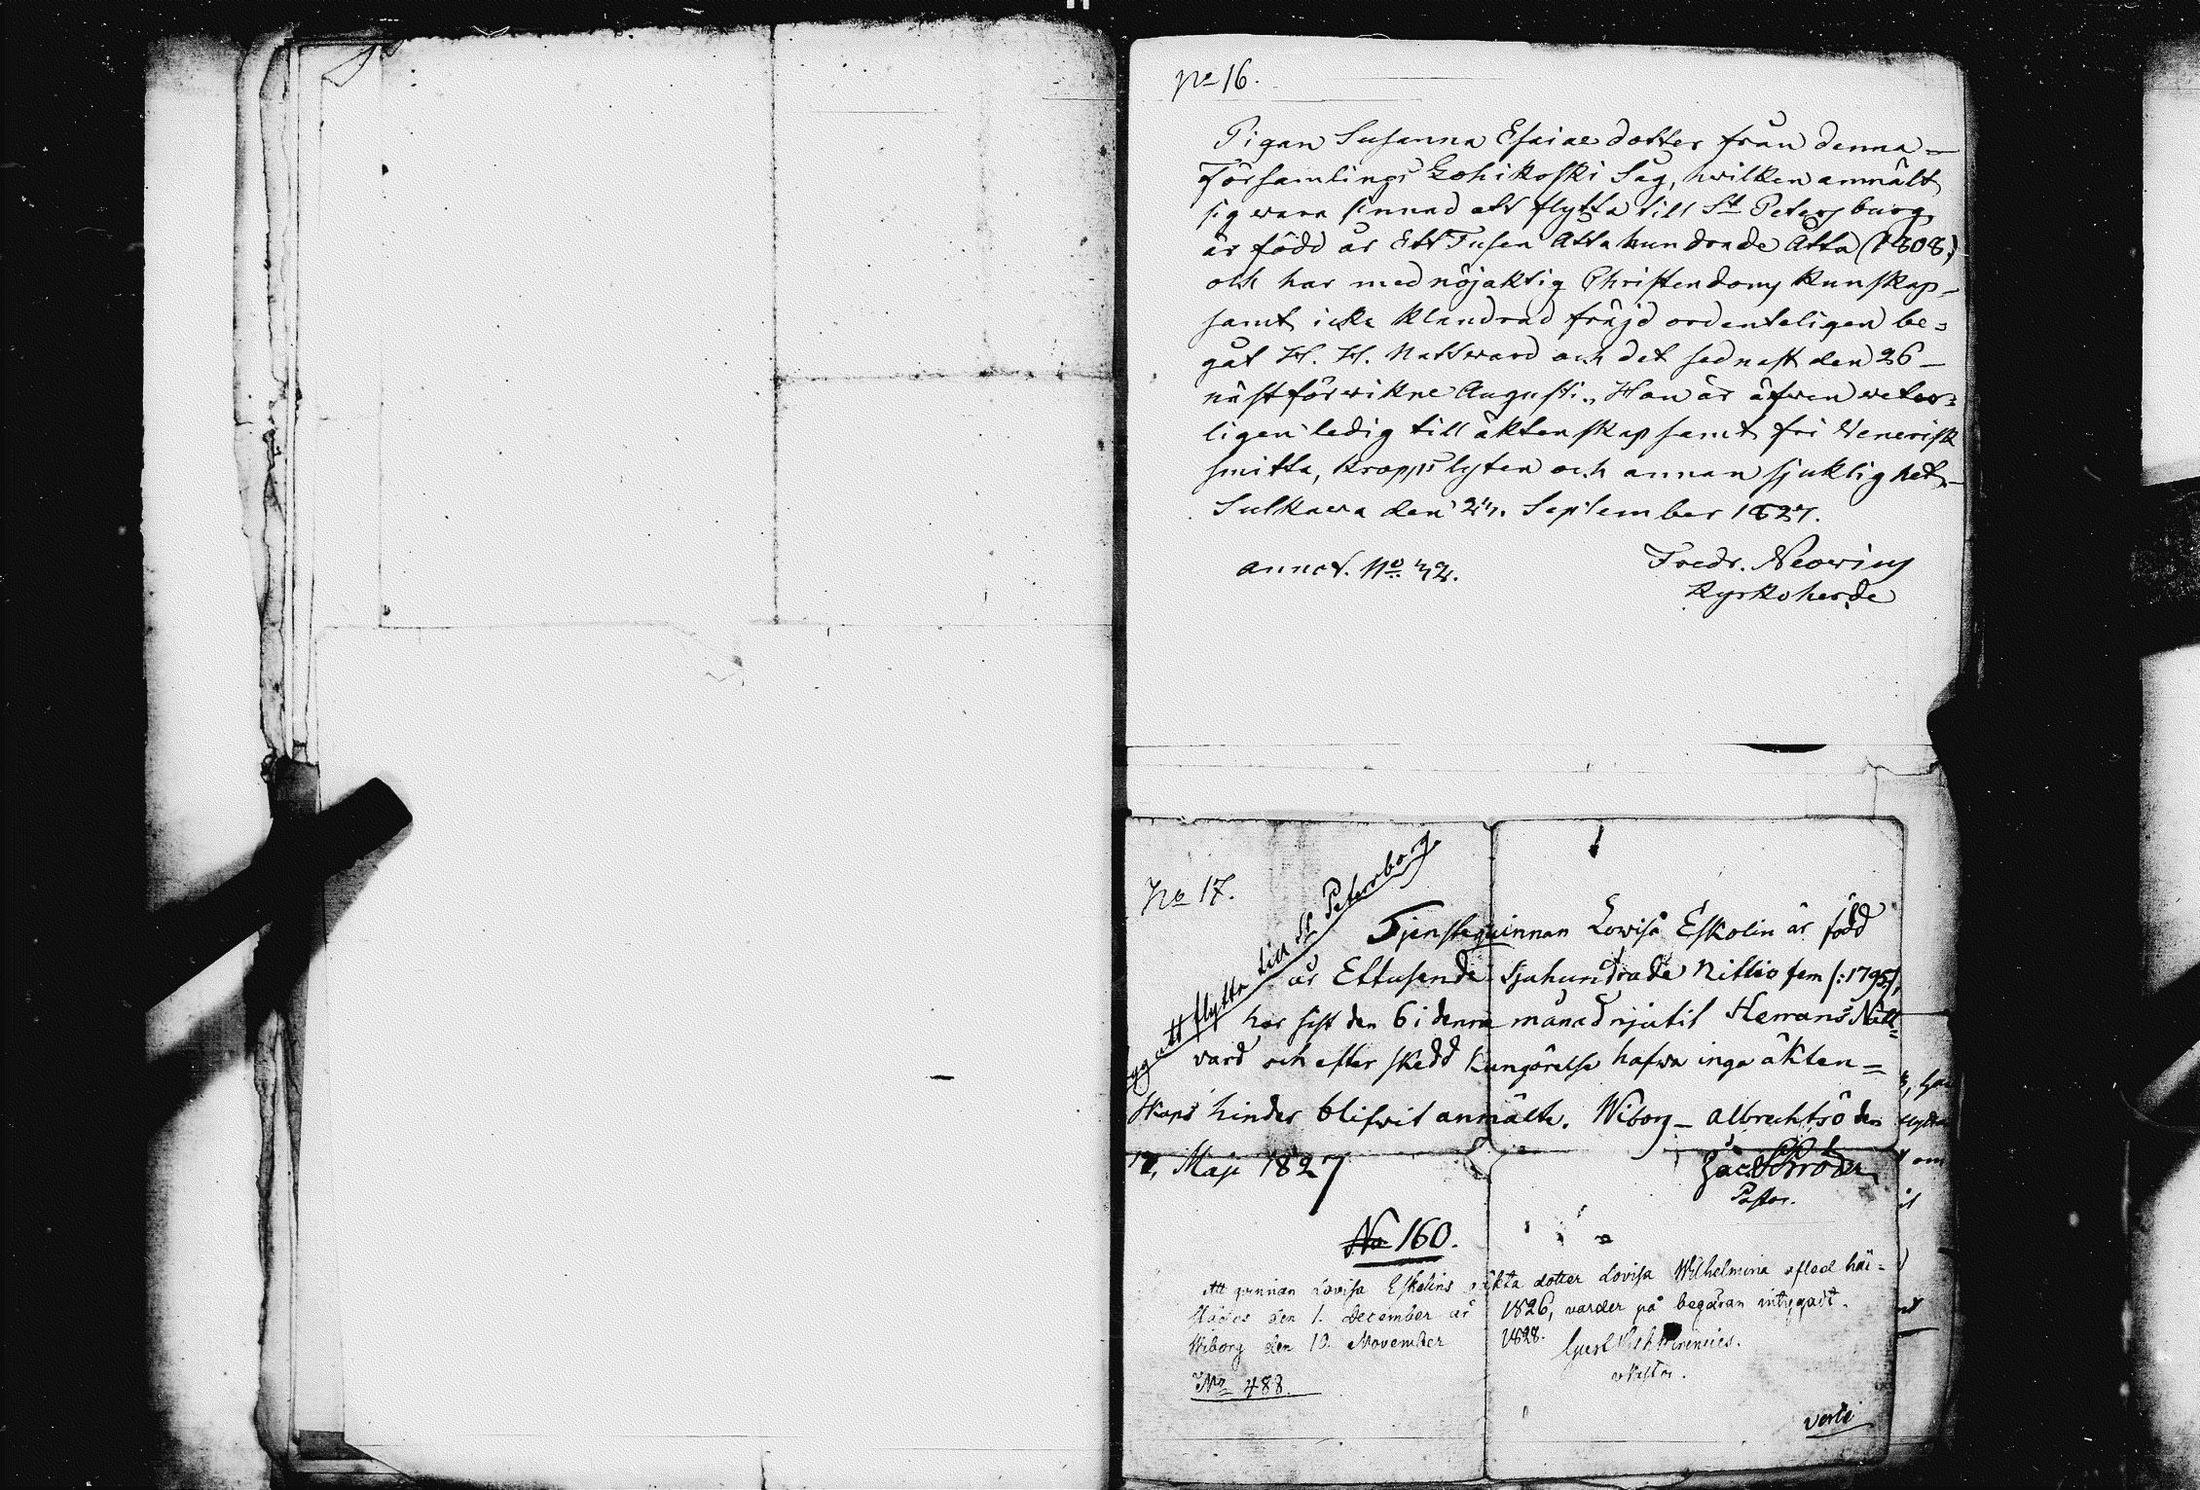 No 16.
Pigan Susanna Esaiae dotter från denna
Församlings Lohikoski Såg, hwilken anmält
sig wara sinnad att flytta till St Petersburg,
är född år Ett Tusen Åtta hundrade Åtta (1808)
och har med nöjaktig Christendoms kunskap
samt icke klandrad fräjd ordenteligen be-
gåt H. H. Nattward och det sednast den 26
nästförwikne Augusti. Hon är äfwen weter-
ligen ledig till äktenskap samt fri Venerisk
smitta, kropps lyten och annan sjuklighet.
Sulkawa den September 1827.
annot. No 32.
Fredr. Neovius
Kyrkoherde
No 17.
att flytta till St Petersborg
Tjensteqvinnan Lowisa Eskolin är född
år Ettusende Sjuhundrade Nittio fem (:1795:),
har sist den 6 i denna månad njutit Herrans Natt-
vard och efter skedd kungörelse hafwa inga äkten=
skaps hinder blifwit anmälte. Wiborg - Albrechtsö den
12. Maji 1827
Jac Schröder
Pastor.
No 160.
Att qvinnan Lovisa Eskolins oäkta dotter Lovisa Wilhelmina afled här-
städes den 1. December år 1826, varder på begäran intygadt.
Wiborg den 10. November 1828.
Pastor.
No 488.
verte